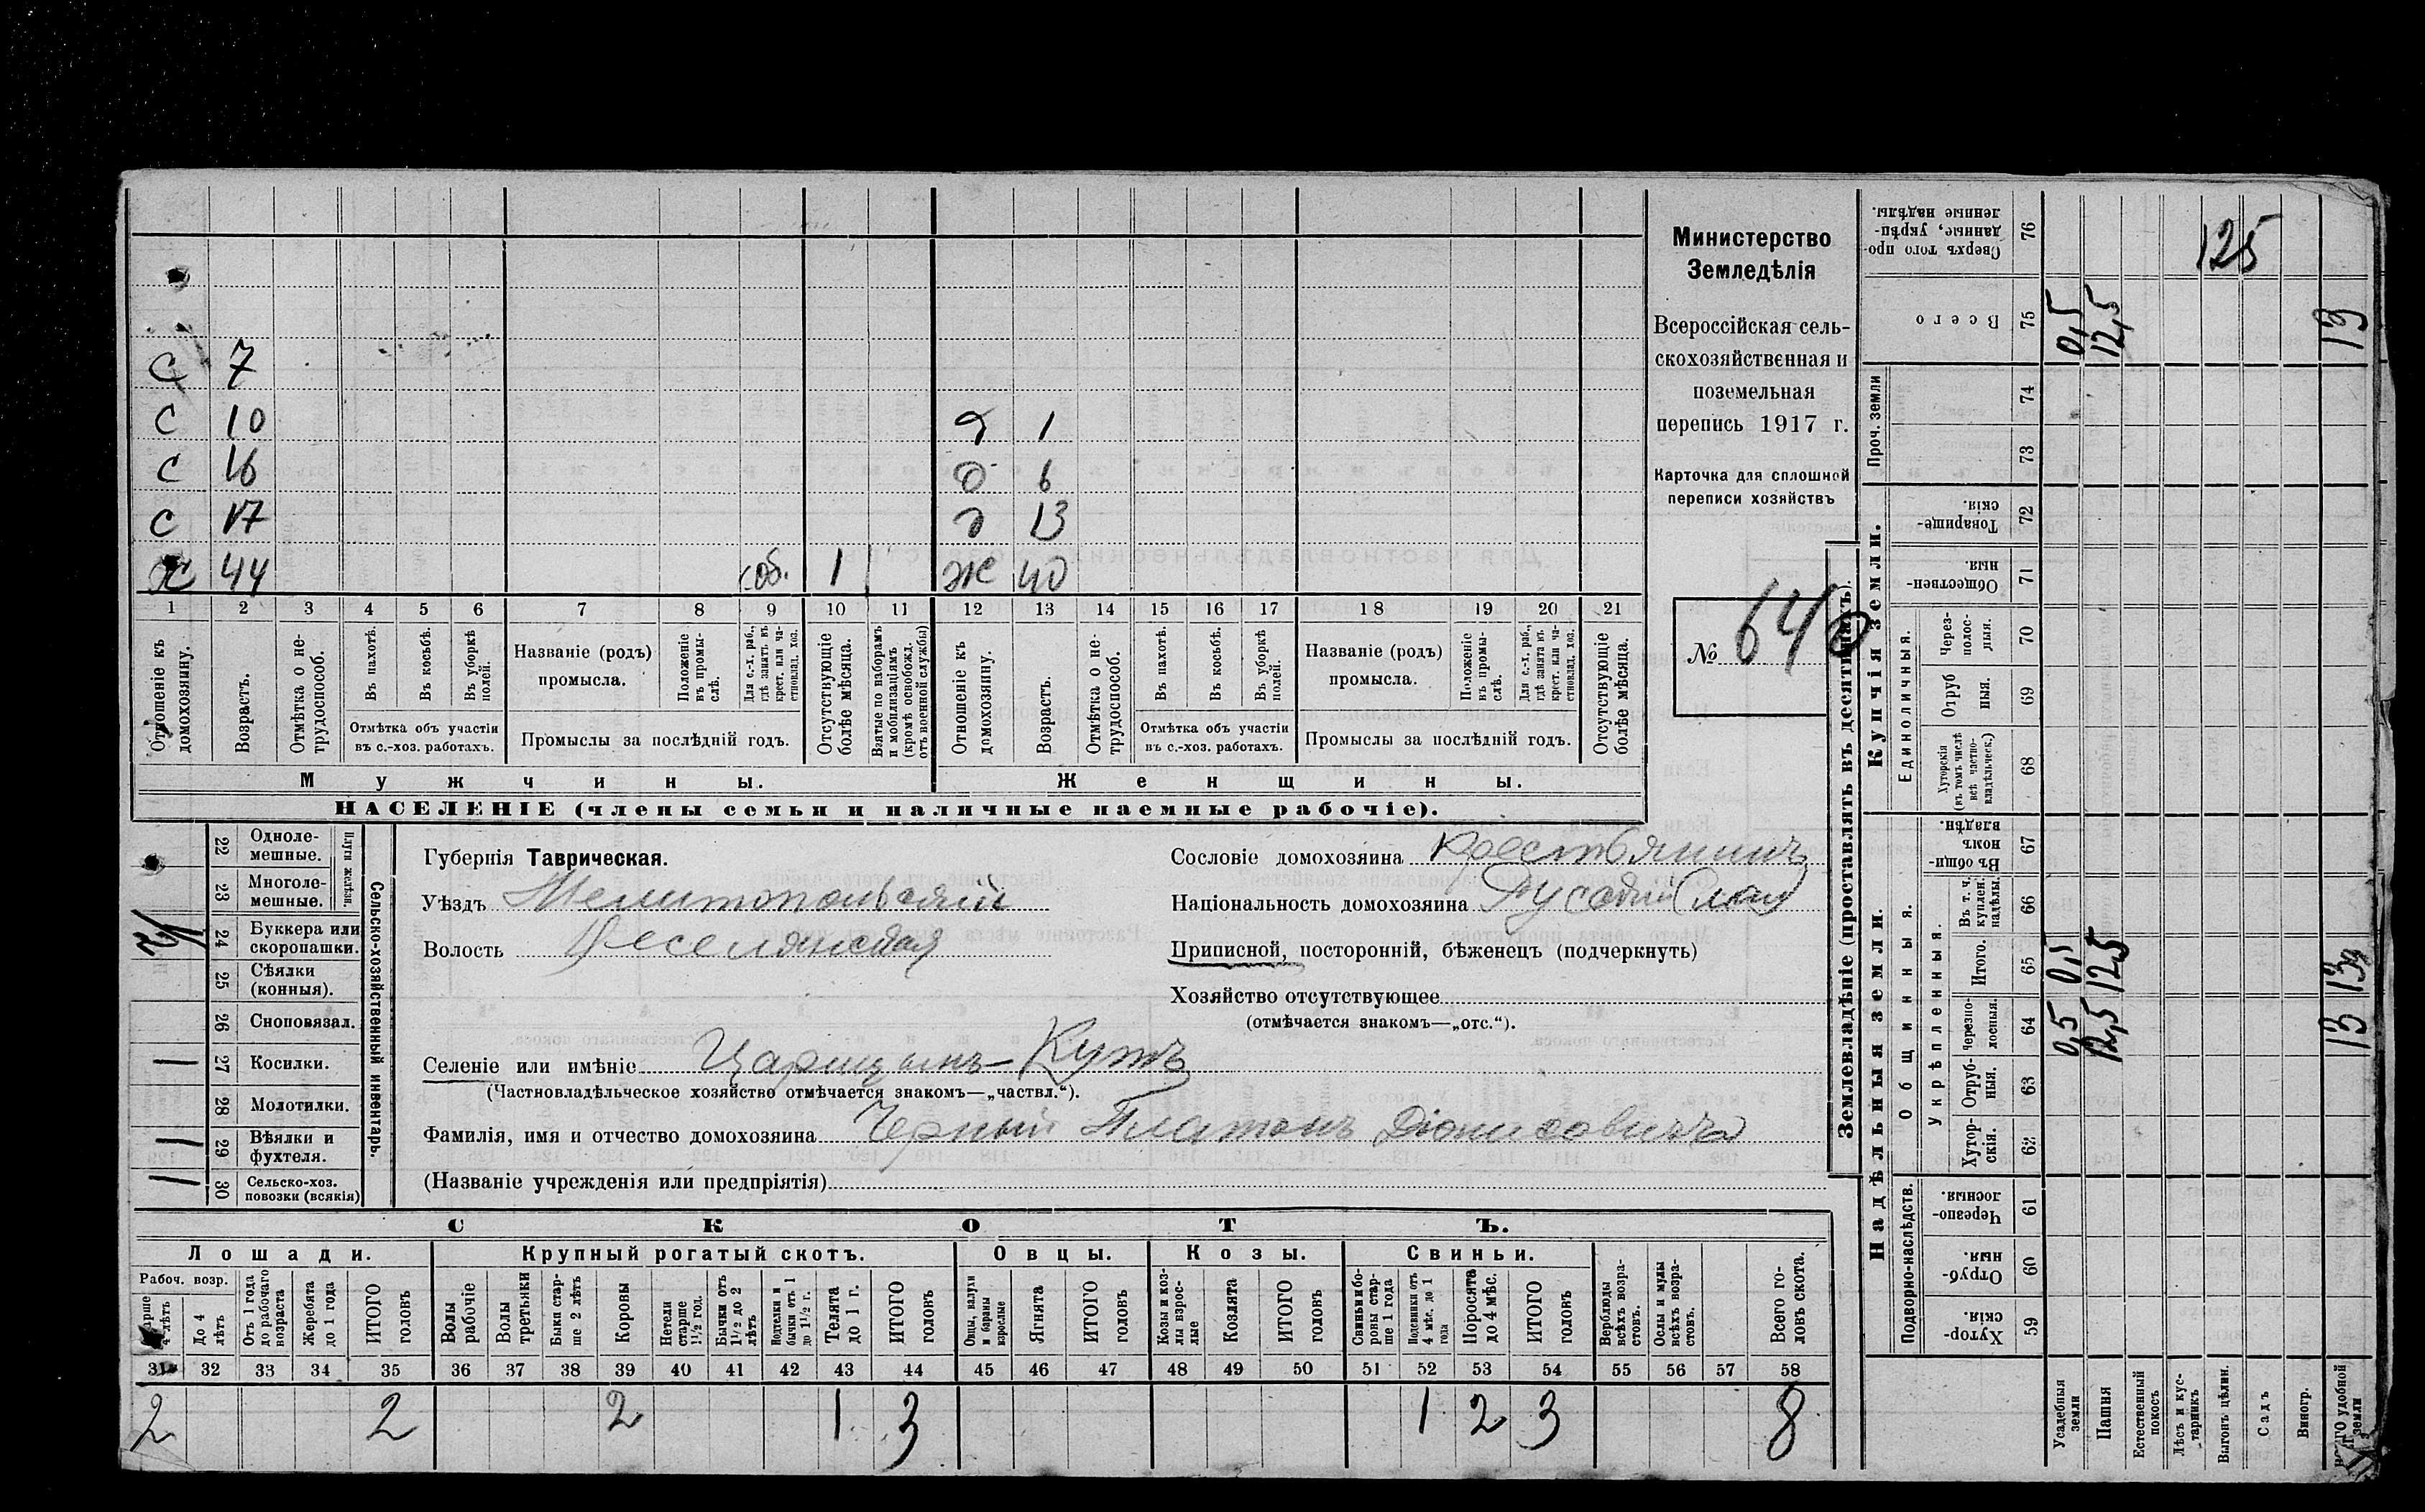 С 7
С 10
С 16
С 17
Х 44 соб. 1
д 1
д 6
д 13
Ж 40
1 2 3 4 5 6 7 8 9 10 11 12 13 14 15 16 17 18 19 20 21
Отношеніе къ домохозяину.
Возрастъ.
Отмѣтка о нетрудоспособ.
Въ пахотѣ.
Въ косьбѣ.
Въ уборкѣ полей.
Отмѣтка объ участіи
въ с.-хоз. работахъ.
Названіе (родъ)
промысла.
Положеніе въ промыслѣ.
Для с.-х. раб., гдѣ занятъ въ крест. или частновлад. хоз.
Промыслы за послѣдній годъ.
Отсутствующіе болѣе мѣсяца.
Взятые по наборамъ и мобилизаціямъ (кромѣ освобожд. отъ военной службы)
Отношеніе къ домохозяину.
Возрастъ.
Отмѣтка о нетрудоспособ.
Въ пахотѣ.
Въ косьбѣ.
Въ уборкѣ полей.
Отмѣтка объ участіи
въ с.-хоз. работахъ.
Названіе (родъ)
промысла.
Положеніе въ промыслѣ.
Для с.-х. раб., гдѣ занята въ крест. или частновлад. хоз.
Промыслы за послѣдній годъ.
Отсутствующіе болѣе мѣсяца.
Мужчины.
Женщины.
НАСЕЛЕНІЕ (члены семьи и наличные наемные рабочіе).
Министерство
Земледѣлія
Всероссійская сель-
скохозяйственная и
поземельная
перепись 1917 г.
Карточка для сплошной
переписи хозяйствъ
№ 646
22 Одноле-
мешные.
23 Многоле-
мешные.
Плуги желѣзн.
24 Буккера или
скоропашки.
25 Сѣялки
(конныя).
26 Сноповязал.
27 Косилки.
28 Молотилки.
29 Вѣялки и
фухтеля.
30 Сельско-хоз.
повозки (всякія)
Сельско-хозяйственный инвентарь.
1
1
1
Губернія Таврическая.
Уѣздъ Мелитопольскій
Волость Веселянская
Сословіе домохозяина Крестьянинъ
Національность домохозяина
Приписной, посторонній, бѣженецъ (подчеркнуть)
Хозяйство отсутствующее
(отмѣчается знакомъ—„отс.“).
Селеніе или имѣніе Царицынъ-Кутъ
(Частновладѣльческое хозяйство отмѣчается знакомъ—„частвл.“).
Фамилія, имя и отчество домохозяина Черный Платонъ Діонисовичъ
(Названіе учрежденія или предпріятія)
СКОТЪ.
Лошади. Крупный рогатый скотъ. Овцы. Козы. Свиньи.
Рабоч. возр.
Старше 4 лѣтъ
До 4 лѣтъ
Отъ 1 года до рабочаго возраста
Жеребята до 1 года
ИТОГО головъ
Волы рабочіе
Волы третьяки
Быки старше 2 лѣтъ
Коровы
Нетели старше 1½ год.
Бычки отъ 1½ до 2 лѣтъ
Водтелки и бычки отъ 1 до 1½ г.
Телята до 1 г.
ИТОГО головъ
Овцы, валухи и бараны взрослые
Ягнята
ИТОГО головъ
Козы и козлы взрослые
Козлята
ИТОГО головъ
Свиньи боровы старше 1 года
Подсвинки отъ 4 мѣс. до 1 года
Поросята до 4 мѣс.
ИТОГО головъ
Верблюды всѣхъ возрастовъ.
Ослы и мулы всѣхъ возрастовъ.
Всего головъ скота.
31 32 33 34 35 36 37 38 39 40 41 42 43 44 45 46 47 48 49 50 51 52 53 54 55 56 57 58
2 2 2 1 3 1 2 3 8
Землевладѣніе (проставлять въ десятинахъ).
Надѣльныя земли.
Купчія земли.
Проч. земли
Подворно-наслѣдств.
Общинныя.
Укрѣпленныя.
Единоличныя.
Хуторскія. 59
Отрубныя. 60
Черезполосныя. 61
Хуторскія. 62
Отрубныя. 63
Черезполосныя. 64
Итого. 65
Въ т. ч. куплен. надѣлы. 66
Въ общинномъ владѣн. 67
Хуторскія (въ томъ числѣ всѣ частновладѣльческ.) 68
Отрубныя. 69
Черезполосныя. 70
Общественныя. 71
Товарищескія. 72
73
74
Всего 75
Сверхъ того проданные, укрѣпленные надѣлы. 76
Усадебныя земли
Пашня
Естественный покосъ
Лѣсъ и кустарникъ
Выгонъ цѣлин.
Садъ
Виногр.
Всего удобной земли
0,5 0,5 0,5
12,5 12,5 12,5
13 13 13
125